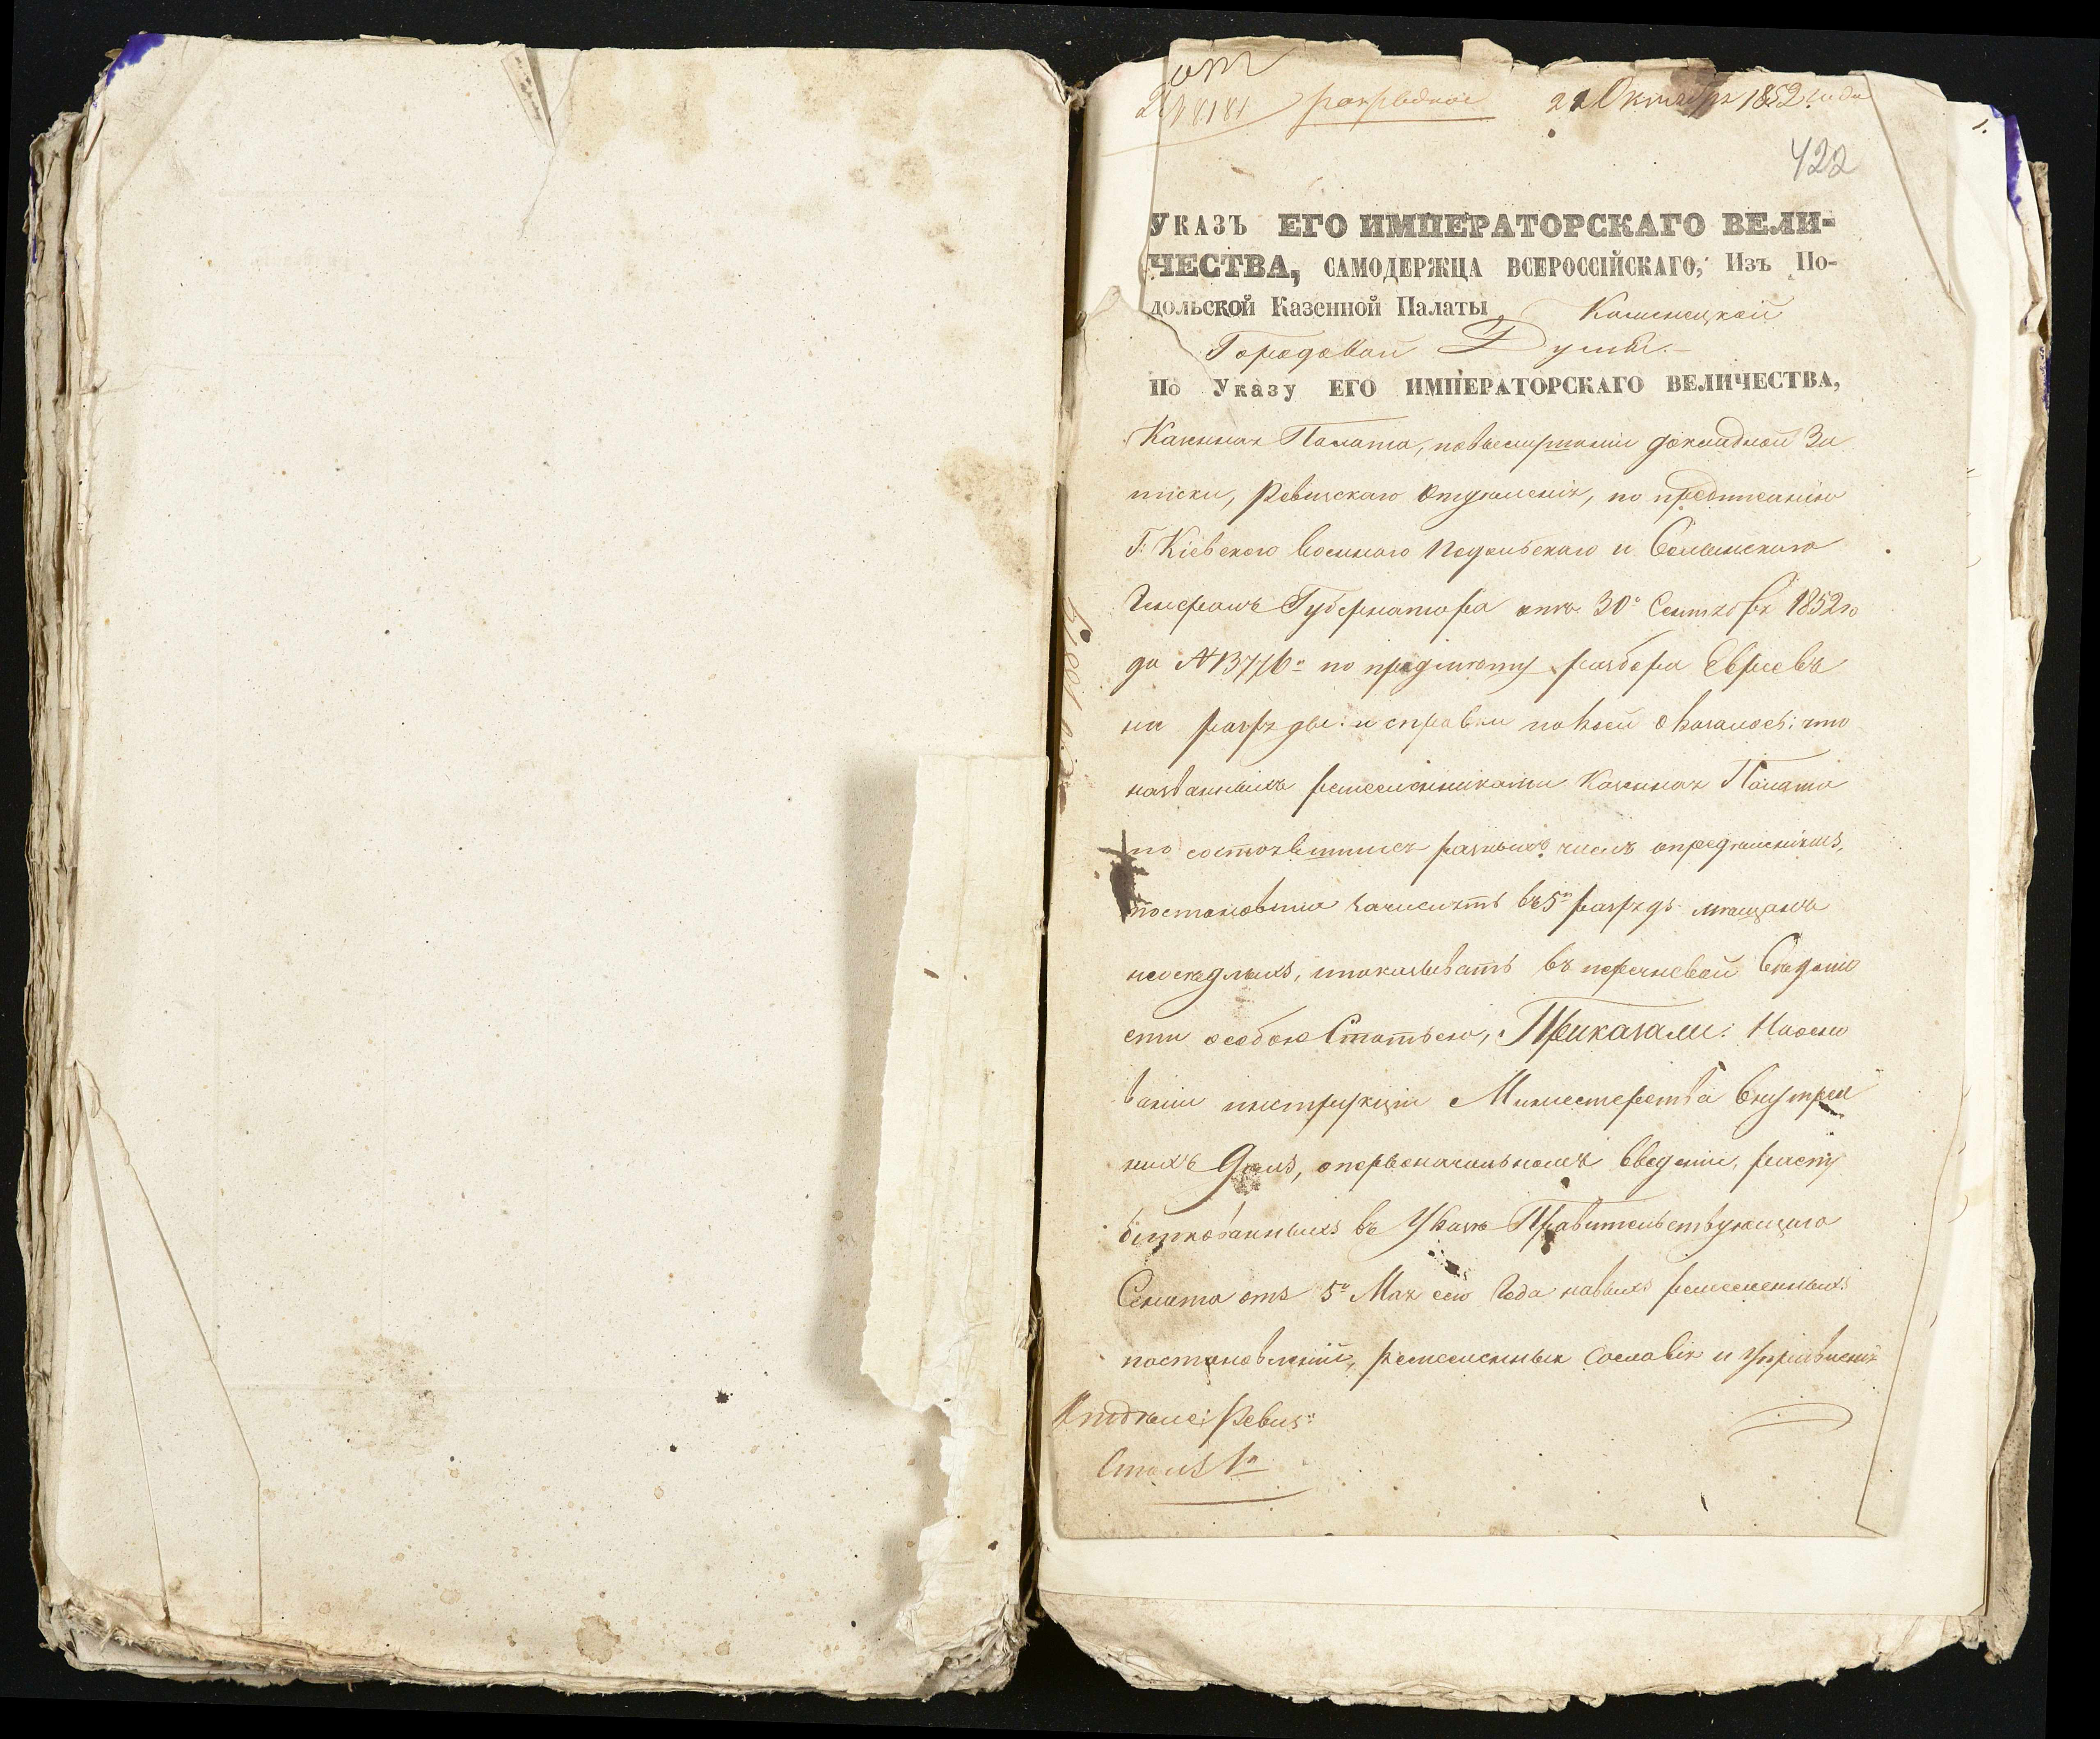 22 Октября 1852 года
422
УКАЗЪ ЕГО ИМПЕРАТОРСКАГО ВЕЛИ-
ЧЕСТВА, САМОДЕРЖЦА ВСЕРОССІЙСКАГО, Изъ По-
дольской Казенной Палаты, Каменецкой
Городовой Думѣ.
По Указу ЕГО ИМПЕРАТОРСКАГО ВЕЛИЧЕСТВА,
Казенная Палата, по выслушаніи докладной За
писки, Ревизскаго Отдѣленія, по предписанію
Г: Кіевскаго Военнаго Подольскаго и Волынскаго
Генералъ Губернатора отъ 30го Сентября 1852 го
да № 13776 по предмету разбора Евреевъ
на разряды: и справки по коей оказалось: что
названныхъ ремесленниками Казенная Палата
по состоявшимся разныхъ числъ опредѣленіямъ,
постановила зачислить въ 5й разрядъ мѣщанъ
неосѣдлыхъ, и показывать въ перечневой Вѣдомо
сти особою Статьею, Приказали: На осно
ваніи инструкціи Министерства Внутрен
нихъ Дѣлъ, о первоначальномъ введеніи, распу
бликованныхъ въ Указѣ Правительствующаго
Сената отъ 5го Мая сего Года новыхъ ремесленныхъ
постановленій, ремесленныя Сословія и Управленія
Отдѣле: Ревиз:
Столъ 1й